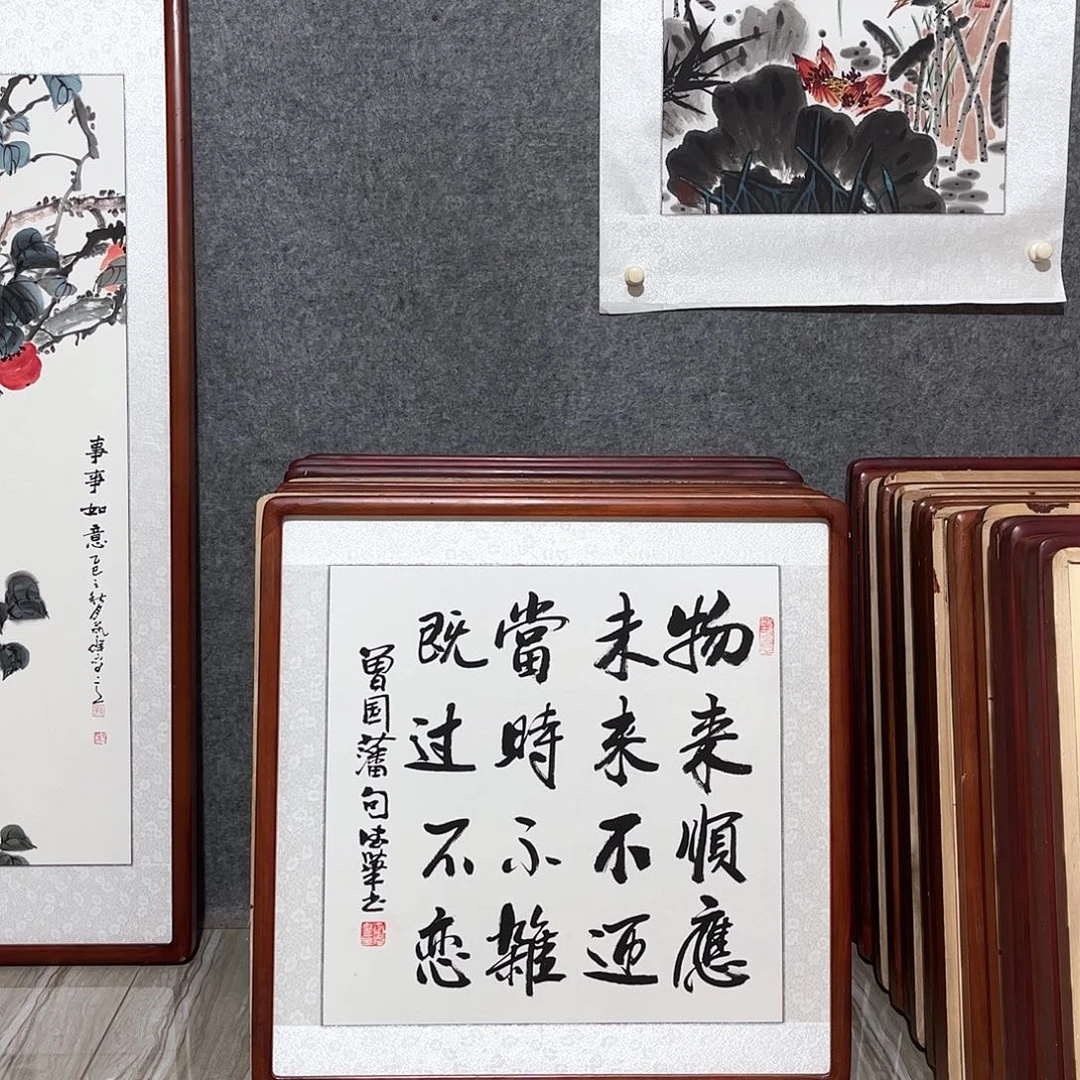 物来順應
未来不迎
當時不雜
既过不恋
曾国藩句華书
事事如意乙巳之秋月